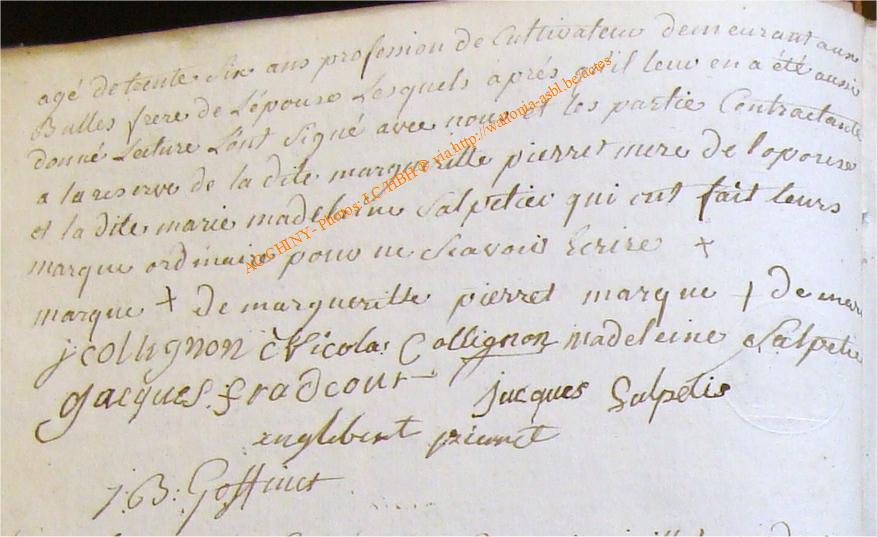 agé de trente Six ans profession de Cultivateur demeurant aux
Bulles frere de L'épouse Lesquels aprés qu'il leur en a été aussi
donné Lecture L'ont Signé avec nous et les partie Contractante
a la reserve de la dite margueritte pierret mere de l'epouse
et la dite marie madeleine Salpetier qui ont fait leurs
marque ordinaire pour ne Scavoir Ecrire +
marque + de margueritte pierret marque + de marie
jcollignon Nicolas Collignon madeleine Salpetie
gacques fradcourt jacques Salpetie
englebert pierret
J.B: Goffinet
ACGHINY - Photos: J.C. HBH @ via http://wallonia-asbl.be/actes